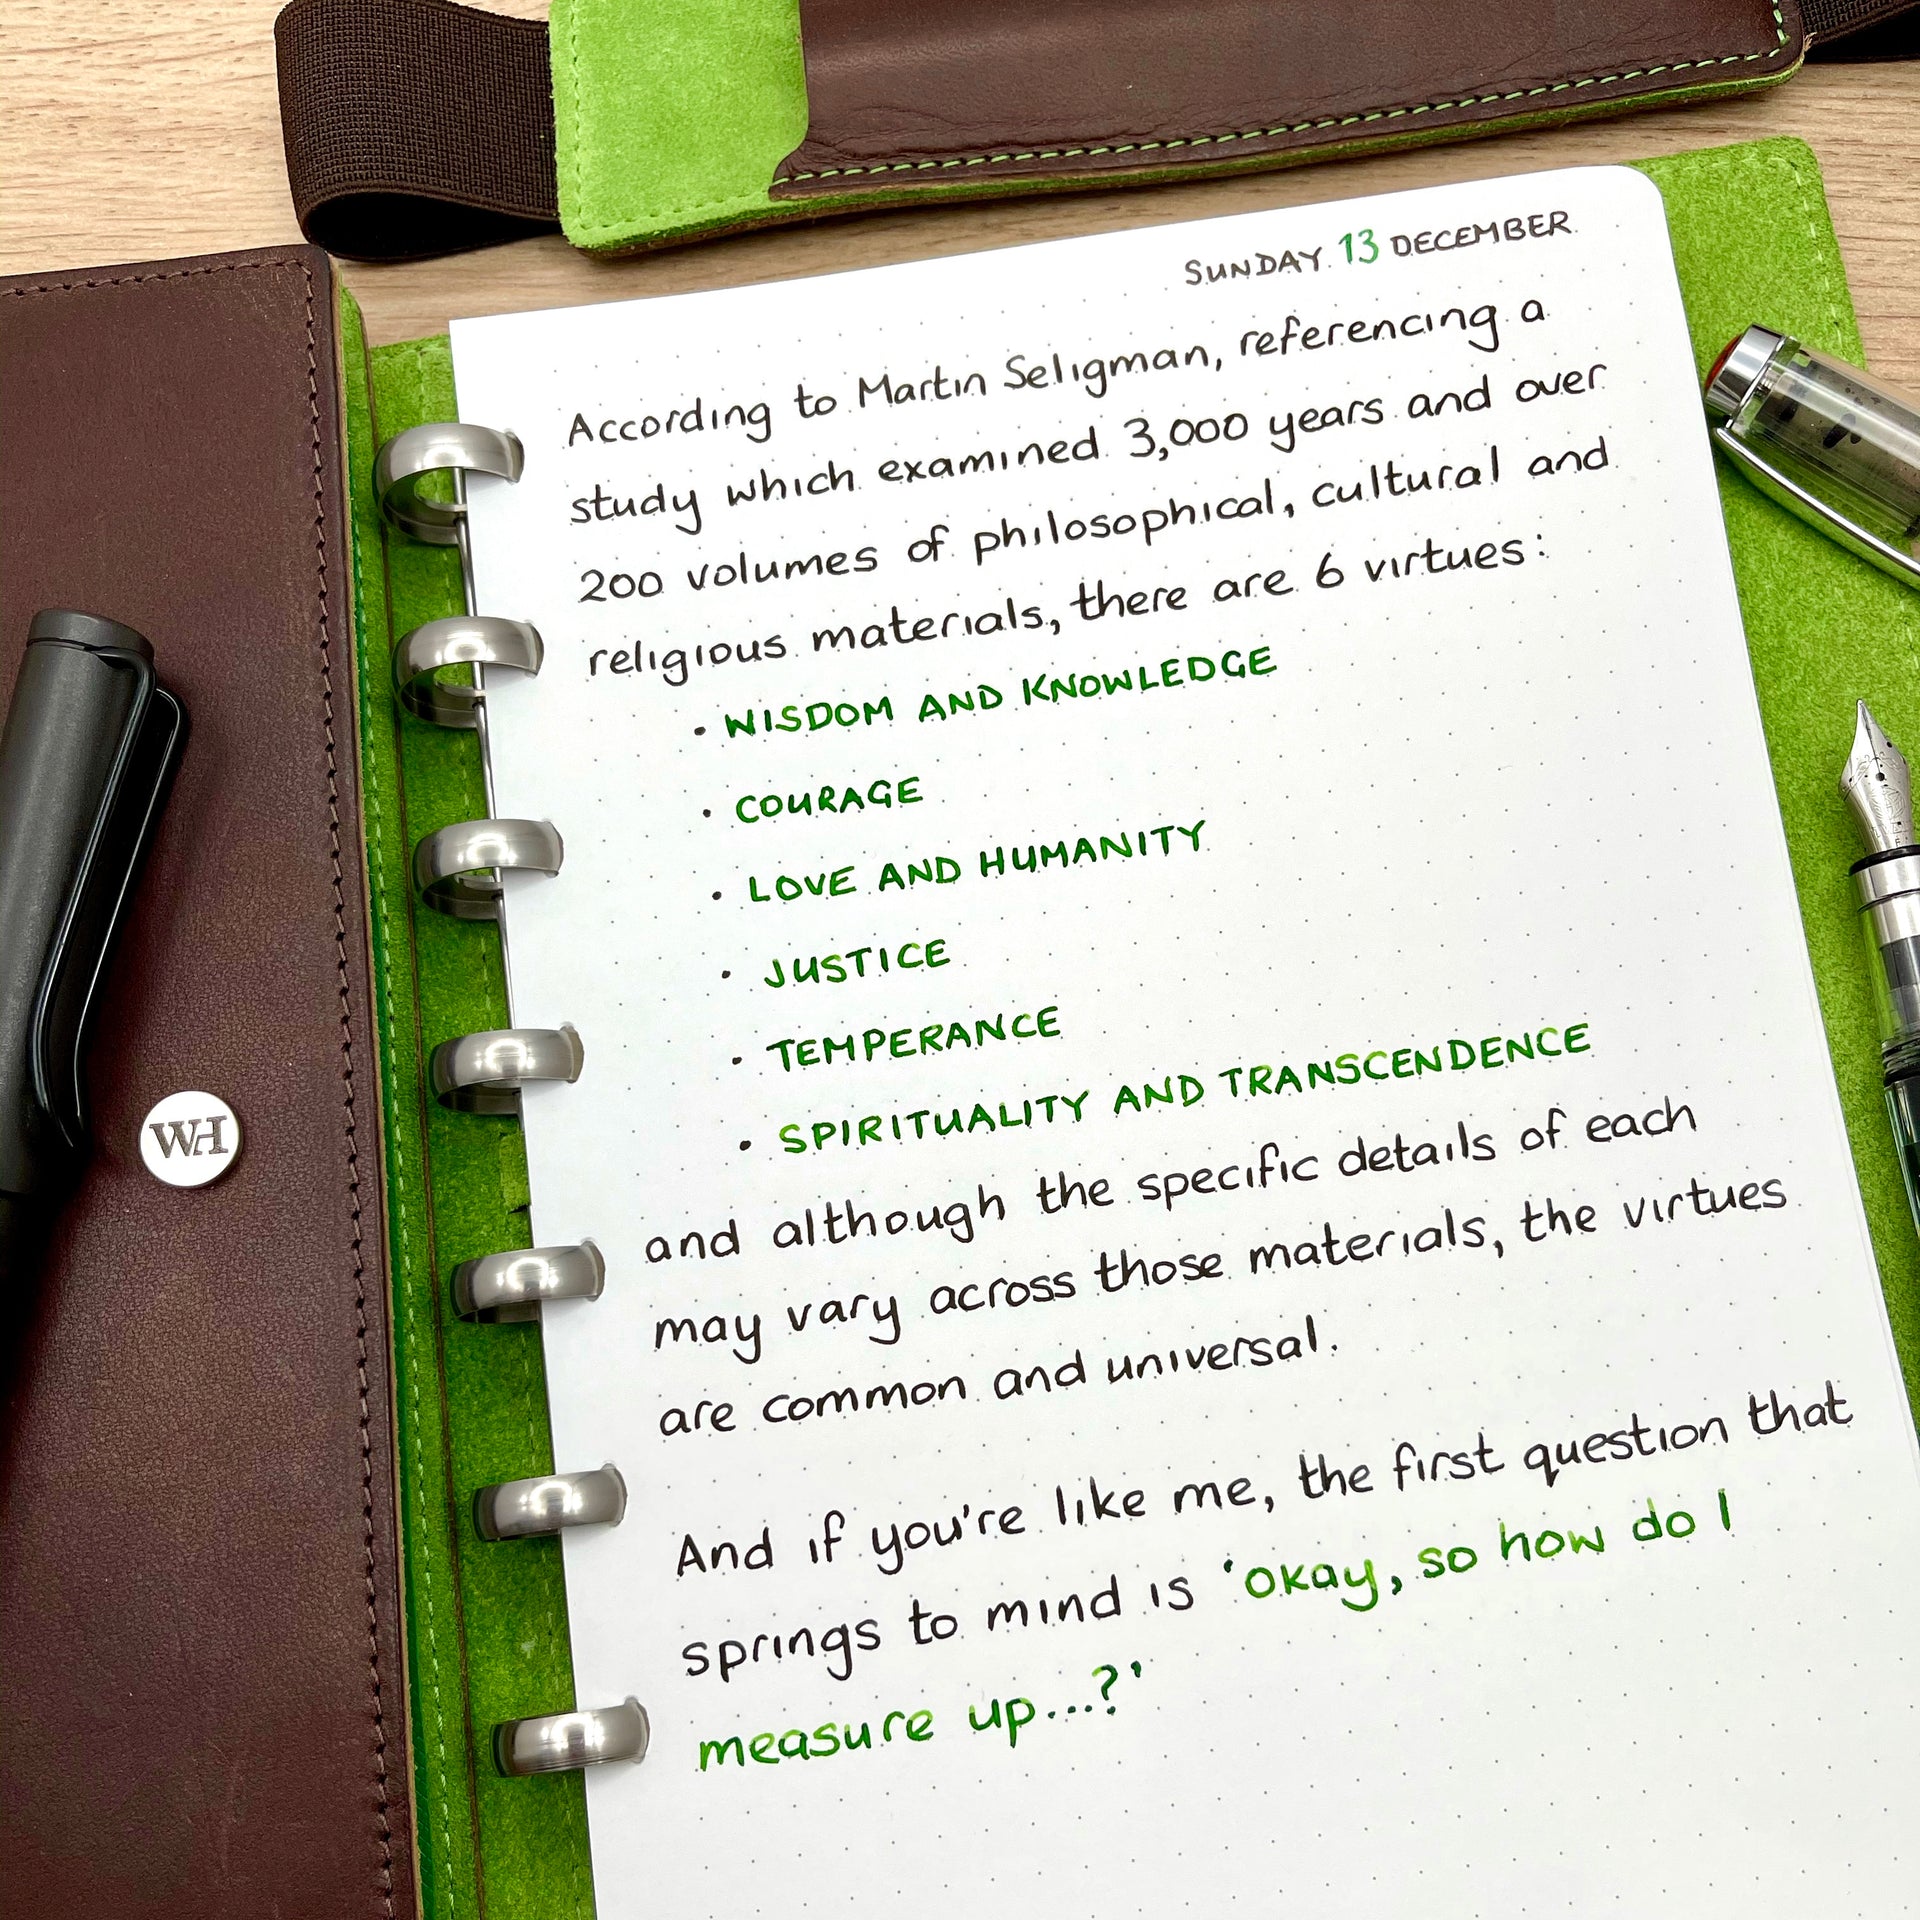 SUNDAY 13 DECEMBER
According to Martin Seligman, referencing a
study which examined 3,000 years and over
200 volumes of philosophical, cultural and
religious materials, there are 6 virtues:
• WISDOM AND KNOWLEDGE
• COURAGE
• LOVE AND HUMANITY
• JUSTICE
• TEMPERANCE
• SPIRITUALITY AND TRANSCENDENCE
and although the specific details of each
may vary across those materials, the virtues
are common and universal.
And if you're like me, the first question that
springs to mind is 'okay, so how do I
measure up...?'
WH